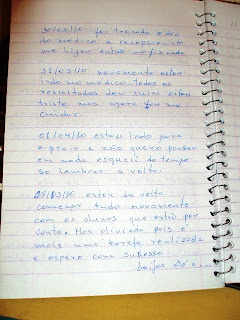 30/03/10 foi trocado o dia
do médico a recepcionista
me ligou estou
31/03/10 novamente estou
indo no médico. todos os
resultados deu ruim estou
triste mas agora vou me
cuidar.
01/04/10 estou indo para
a praia e não quero pensar
em nada esqueci do tempo
so lembrar a volta.
05/03/10 estou de volta
começar tudo novamente
com os alunos que estão por
conta. Mas
mais uma tarefa realizada
e espero com sucesso.
beijos até a